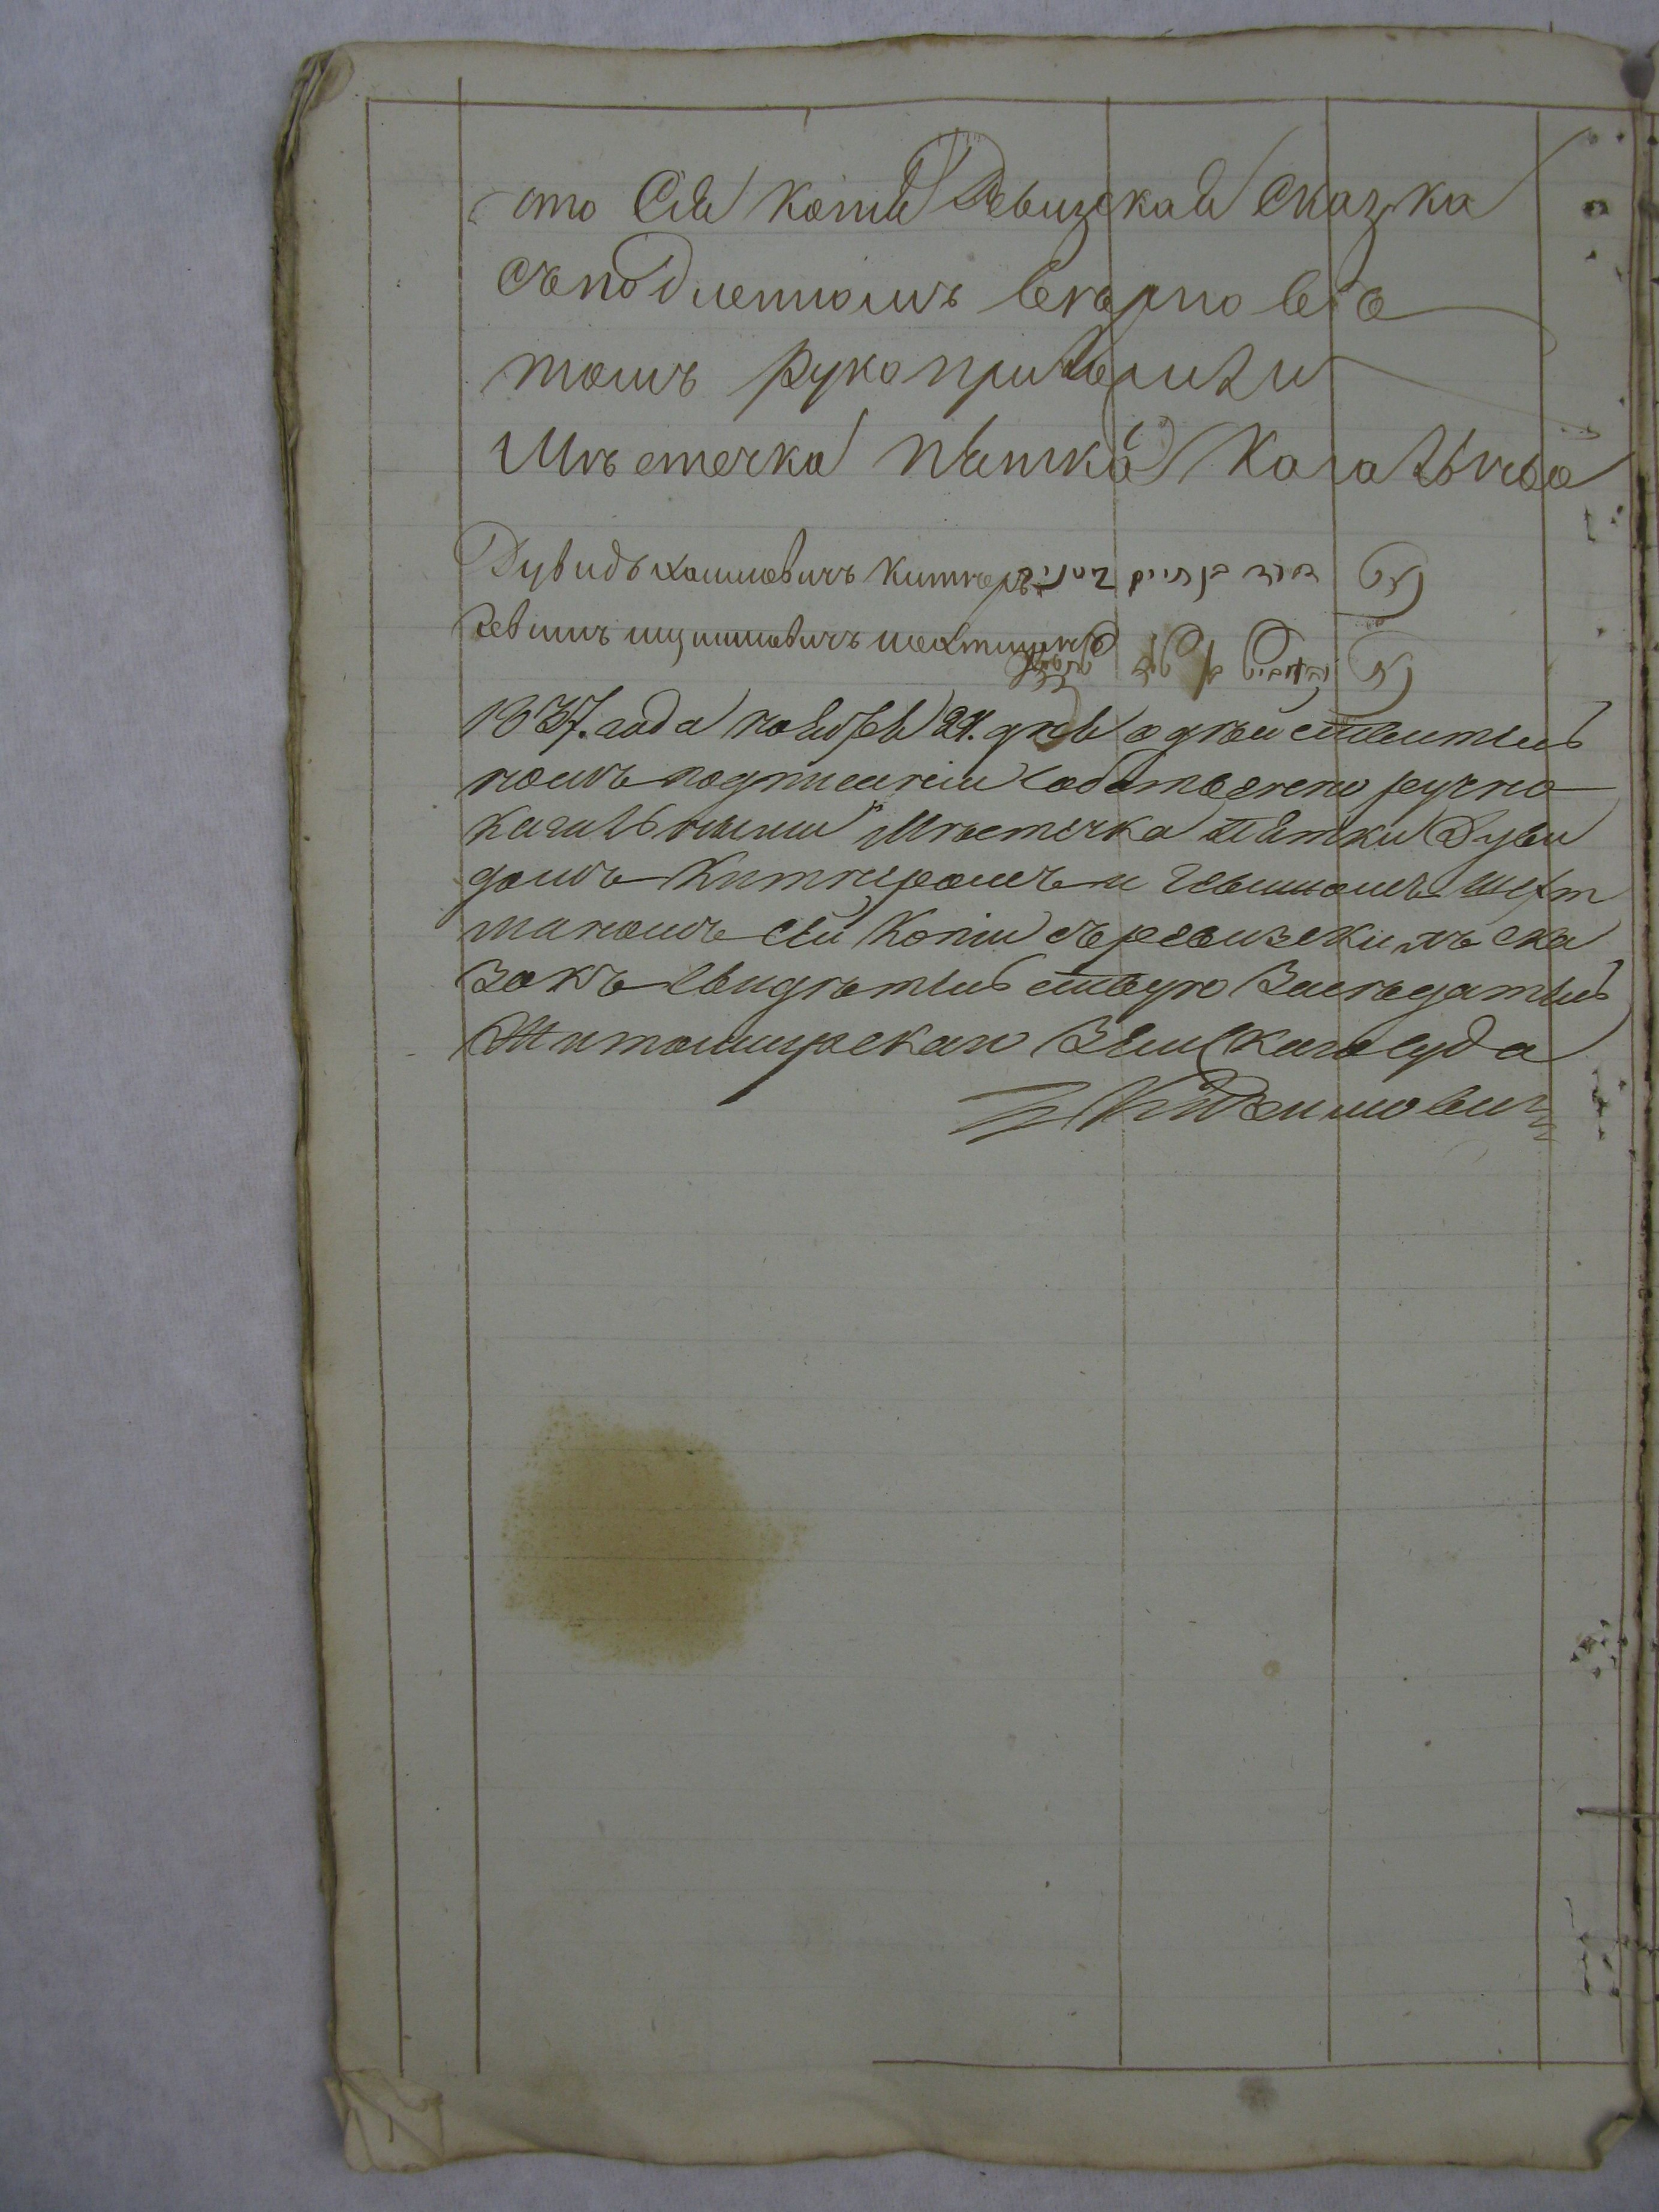 что Сія копія Ревизская Сказка
съ подленномъ верно въ
томъ рукоприложили
Мѣстечка Пятка Кагальные
Дувидъ Хаимовичъ Китнеръ דוד בן חיים קיטניר נאם
Левинъ шехтманъ נאם
1837. года ноября 24. дня о дѣйствитель
номъ подписаніи собственно ручно
кагальными Мѣстечка Пятки Дуви
домъ Китнеромъ и Левиномъ Шехт
маномъ сей копіи съ ревизскихъ ска
зокъ свидѣтельствую Засѣдатель
Житомирскаго Земскаго суда